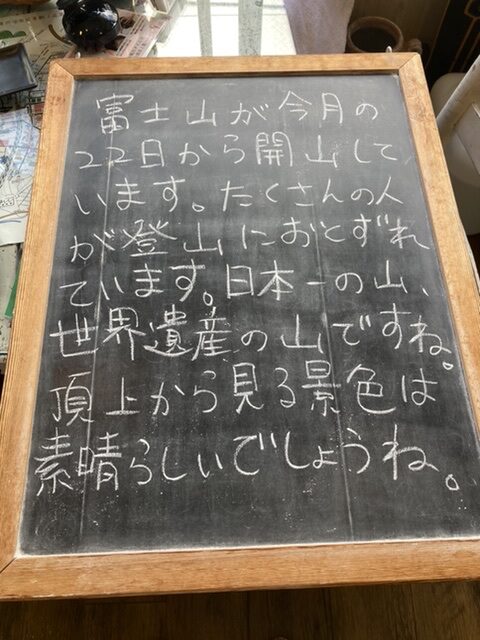 富士山が今月の
22日から開山して
います。たくさんの人
が登山におとずれ
ています。日本一の山、
世界遺産の山ですね。
頂上から見る景色は
素晴らしいでしょうね。